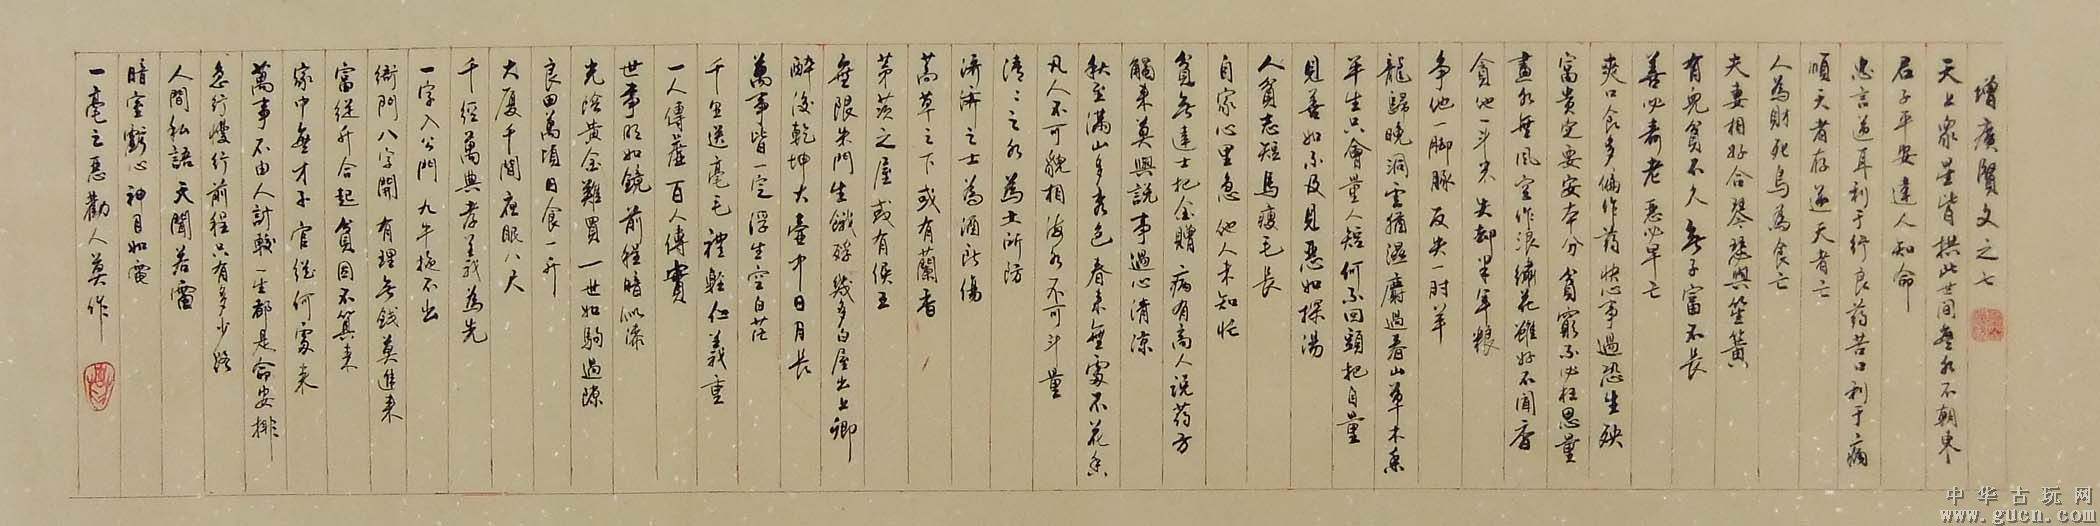 增廣賢文之七
天上眾星皆拱北世間無水不朝東
君子平安達人知命
忠言逆耳利于行良药苦口利于病
順天者存逆天者亡
人為財死鳥為食亡
夫妻相好合琴瑟與笙簧
有兒貧不久無子富不長
善必壽老惡必早亡
爽口食多偏作药快心事過恐生殃
富貴定要安本分貧窮不必枉思量
畫水無風空作浪繡花雖好不聞香
貪他一斗米失却半年粮
争他一脚豚反失一肘羊
龍歸晚洞雲猶濕麝過春山草木香
平生只會量人短何不回頭把自量
見善如不及見惡如探湯
人貧志短馬瘦毛長
自家心里急他人未知忙
貧無達士把金贈病有高人说药方
觸來莫與説事過心清涼
秋至滿山多秀色春來無處不花香
凡人不可貌相海水不可斗量
清清之水為土所防
濟濟之士為酒所傷
蒿草之下或有蘭香
茅茨之屋或有侯王
無限朱門生餓殍幾多白屋出公卿
醉後乾坤大壺中日月長
萬事皆一定浮生空白茫
千里送毫毛禮輕仁義重
一人傳虛百人傳實
世事明如鏡前程暗似漆
光陰黄金難買一世如駒過隙
良田萬頃日食一升
大厦千間夜眠八尺
千經萬典孝義為先
一字入公門九牛拖不出
衙門八字開有理無錢莫進來
富從升合起貧因不算來
家中無才子官從何處來
萬事不由人計較一生都是命安排
急行慢行前程只有多少路
人間私語天聞若雷
暗室虧心神目如電
一毫之惡勸人莫作
中华古玩网
www.gucn.com